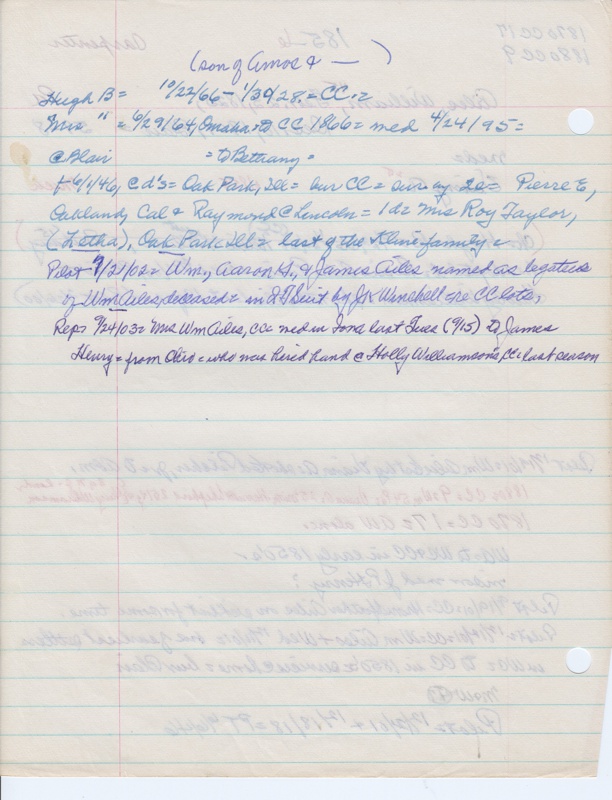 (son of Amos & — )
Hugh B = 10/22/66 – 1/30/28. = CC. =
Mrs " = 6/29/64, Omaha = to CC 1866 = med 4/24/95 =
@ Blair = to Bethany =
f 6/1/46, @ d's = Oak Park, Ill = bur CC = surv by 2s = Pierre E,
Oakland, Cal & Raymond @ Lincoln = 1d = Mrs Roy Taylor,
(Letha), Oak Park Ill = last of the Kline family =
Pilot 9/21/02 = Wm, Aaron H. & James Ailes named as legatees
of Wm Ailes, deceased = in suit by Winchell = re CC lots,
Rep = 9/24/03 = Mrs Wm Ailes, CC = med in Iowa last Tues (9/15) to James
Henry = from Ohio = who was hired hand @ Holly Williamson's, CC = last season